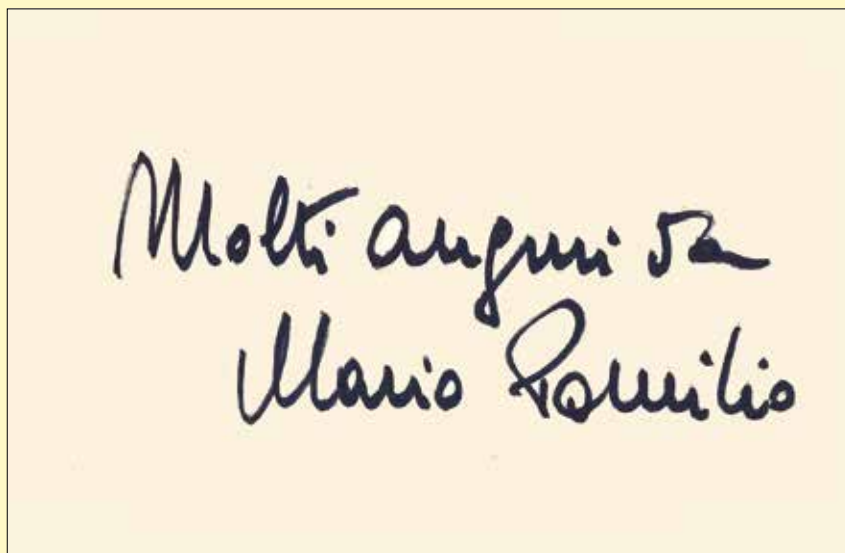 Molti auguri da
Mario Pomilio